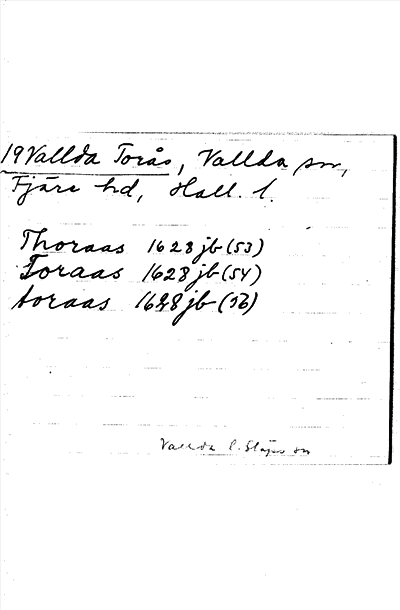 19 Vallda Torås, Vallda sn,
Fjäre hd, Hall. l.
Thoraas 1628 jb (53)
Toraas 1628 jb (54)
toraas 1628 jb (56)
Vallda l. Släps sn